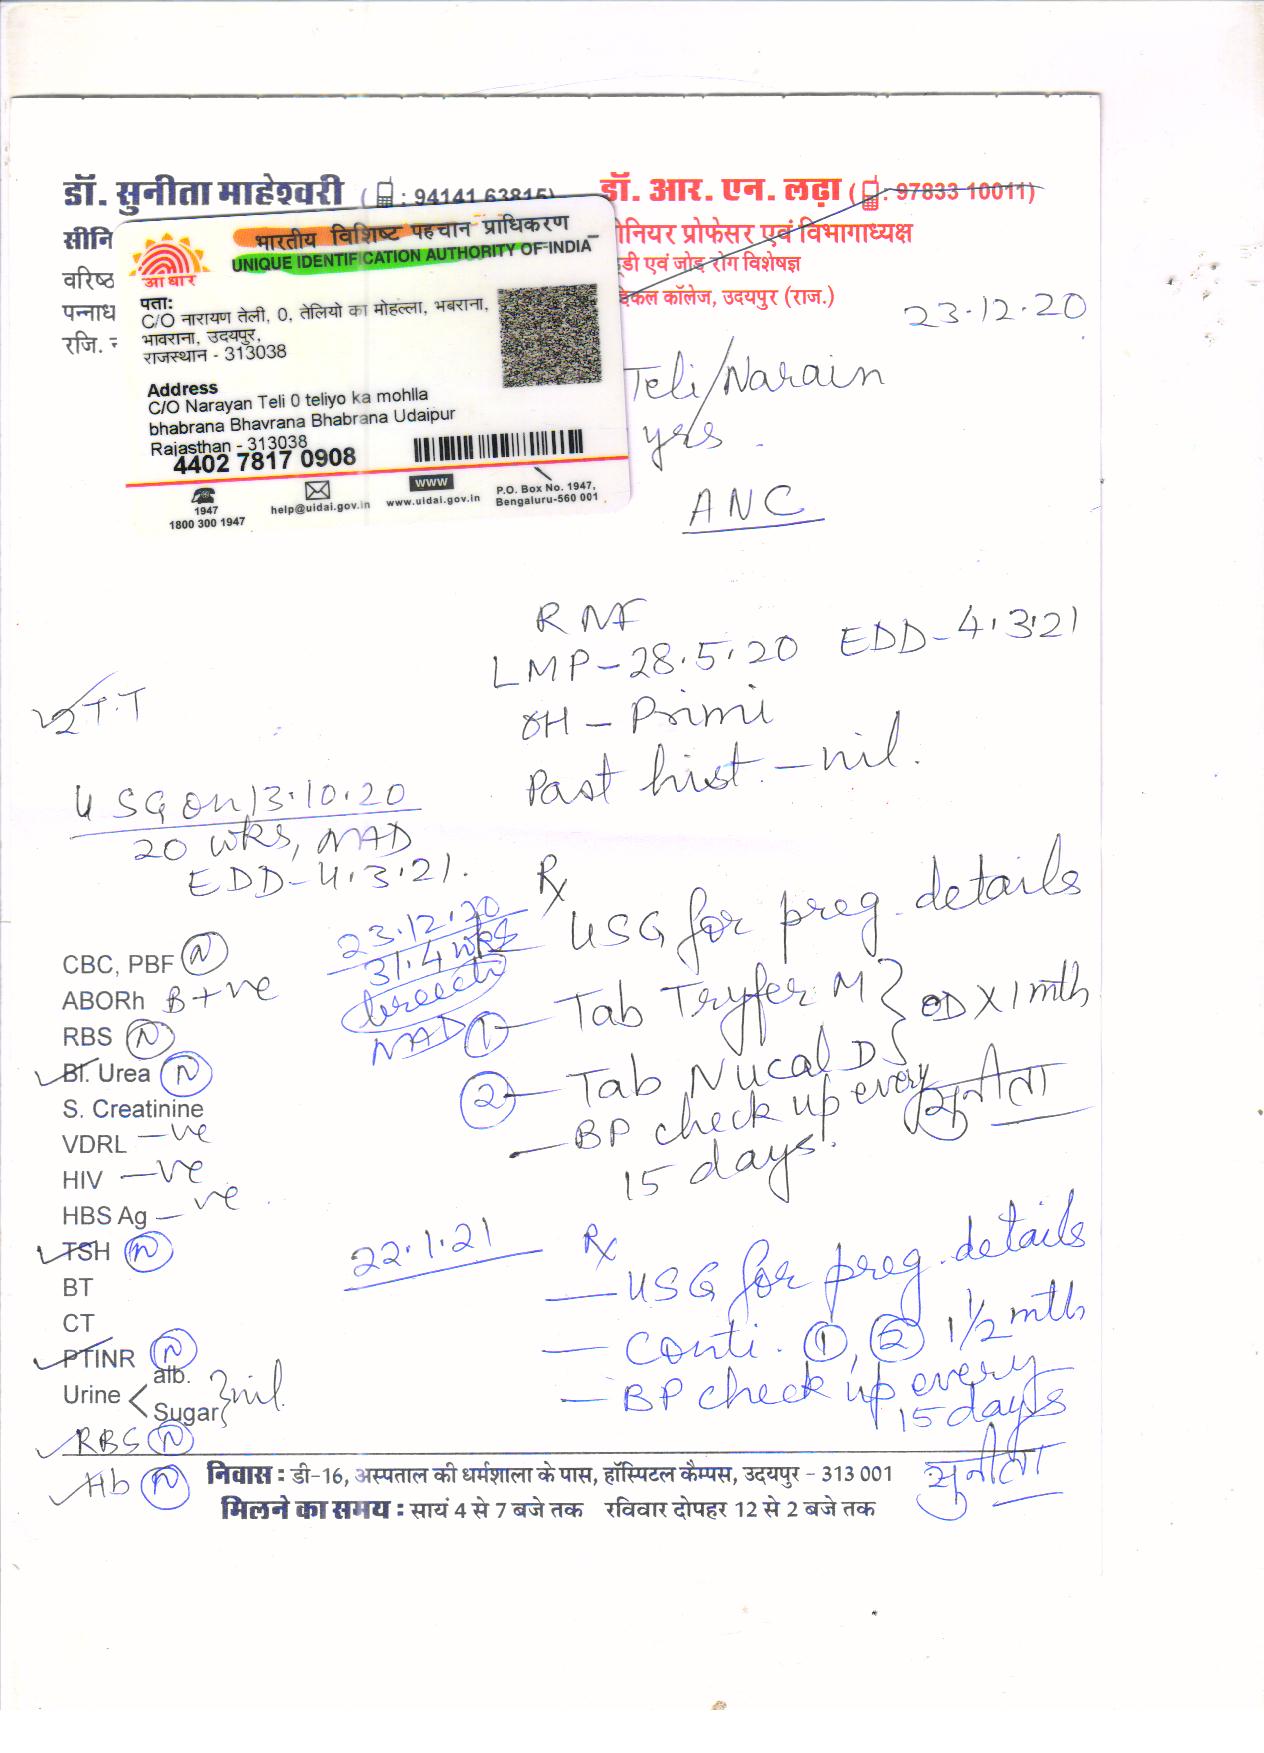 डॉ. सुनीता माहेश्वरी ( : 94141 63815)
डॉ. आर. एन. लढ़ा ( : 97833 10011)
सीनि
नियर प्रोफेसर एवं विभागाध्यक्ष
वरिष्ठ
डी एवं जोड़ रोग विशेषज्ञ
पन्नाध
कल कॉलेज, उदयपुर (राज.)
रजि.
23.12.20
भारतीय विशिष्ट पहचान प्राधिकरण
UNIQUE IDENTIFICATION AUTHORITY OF INDIA
आधार
पता:
C/O नारायण तेली, 0, तेलियो का मोहल्ला, भबराना,
भावराना, उदयपुर,
राजस्थान - 313038
Address
C/O Narayan Teli 0 teliyo ka mohlla
bhabrana Bhavrana Bhabrana Udaipur
Rajasthan - 313038
4402 7817 0908
1947
1800 300 1947
help@uidai.gov.in
WWW
www.uidai.gov.in
P.O. Box No. 1947,
Bengaluru-560 001
Teli/Narain
yrs
ANC
LMP-28.5.20 EDD-4.3.21
OH - Primi
Past hist. - nil.
2 T.T
USG on 13.10.20
20 wks, NAD
EDD-4.3.21.
Rx
USG for preg. details
23.12.20
31.4 wks
breech
NAD
① Tab Tryfer M } OD X 1 mth
② Tab Nucal D
- BP check up every
15 days.
सुनीता
CBC, PBF N
ABORh B+ve
RBS N
Bl. Urea N
S. Creatinine
VDRL -ve
HIV -ve
HBS Ag -ve
TSH N
BT
CT
PTINR N
Urine < alb.
Sugar } nil.
RBS N
Hb N
22.1.21
Rx
- USG for preg. details
- Conti. ①, ② 1 1/2 mth
- BP check up every
15 days
सुनीता
निवास : डी-16, अस्पताल की धर्मशाला के पास, हॉस्पिटल कैम्पस, उदयपुर - 313 001
मिलने का समय : सायं 4 से 7 बजे तक रविवार दोपहर 12 से 2 बजे तक